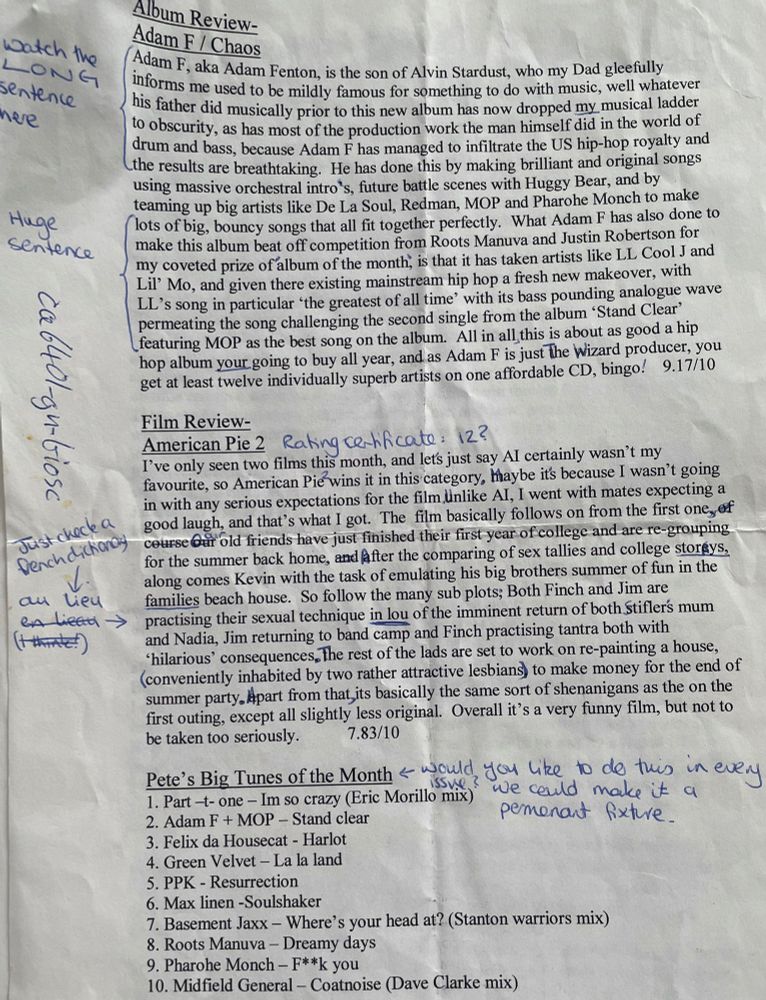 Album Review-
Adam F / Chaos
watch the
LONG
sentence
here
Adam F, aka Adam Fenton, is the son of Alvin Stardust, who my Dad gleefully
informs me used to be mildly famous for something to do with music, well whatever
his father did musically prior to this new album has now dropped my musical ladder
to obscurity, as has most of the production work the man himself did in the world of
drum and bass, because Adam F has managed to infiltrate the US hip-hop royalty and
the results are breathtaking. He has done this by making brilliant and original songs
using massive orchestral intro's, future battle scenes with Huggy Bear, and by
teaming up big artists like De La Soul, Redman, MOP and Pharohe Monch to make
Huge
sentence
lots of big, bouncy songs that all fit together perfectly. What Adam F has also done to
make this album beat off competition from Roots Manuva and Justin Robertson for
my coveted prize of 'album of the month', is that it has taken artists like LL Cool J and
Lil' Mo, and given there existing mainstream hip hop a fresh new makeover, with
LL's song in particular 'the greatest of all time' with its bass pounding analogue wave
permeating the song challenging the second single from the album 'Stand Clear'
featuring MOP as the best song on the album. All in all, this is about as good a hip
hop album your going to buy all year, and as Adam F is just The Wizard producer, you
get at least twelve individually superb artists on one affordable CD, bingo! 9.17/10
ca6401-gn-6iosc
Film Review-
American Pie 2 Rating certificate: 12?
I've only seen two films this month, and let's just say AI certainly wasn't my
favourite, so American Pie 2 wins it in this category. Maybe it's because I wasn't going
in with any serious expectations for the film. Unlike AI, I went with mates expecting a
good laugh, and that's what I got. The film basically follows on from the first one, of
course our old friends have just finished their first year of college and are re-grouping
for the summer back home, and After the comparing of sex tallies and college storeys,
along comes Kevin with the task of emulating his big brothers summer of fun in the
families beach house. So follow the many sub plots; Both Finch and Jim are
practising their sexual technique in lou of the imminent return of both Stifler's mum
and Nadia, Jim returning to band camp and Finch practising tantra both with
'hilarious' consequences. The rest of the lads are set to work on re-painting a house,
(conveniently inhabited by two rather attractive lesbians) to make money for the end of
summer party. Apart from that, its basically the same sort of shenanigans as the on the
first outing, except all slightly less original. Overall it's a very funny film, but not to
be taken too seriously. 7.83/10
Just check a
french dictionary
au lieu
en lieau
(I think!)
Pete's Big Tunes of the Month ← would you like to do this in every
issue? we could make it a
pemenant fixture.
1. Part –t- one – Im so crazy (Eric Morillo mix)
2. Adam F + MOP – Stand clear
3. Felix da Housecat - Harlot
4. Green Velvet – La la land
5. PPK - Resurrection
6. Max linen -Soulshaker
7. Basement Jaxx – Where's your head at? (Stanton warriors mix)
8. Roots Manuva – Dreamy days
9. Pharohe Monch – F**k you
10. Midfield General – Coatnoise (Dave Clarke mix)